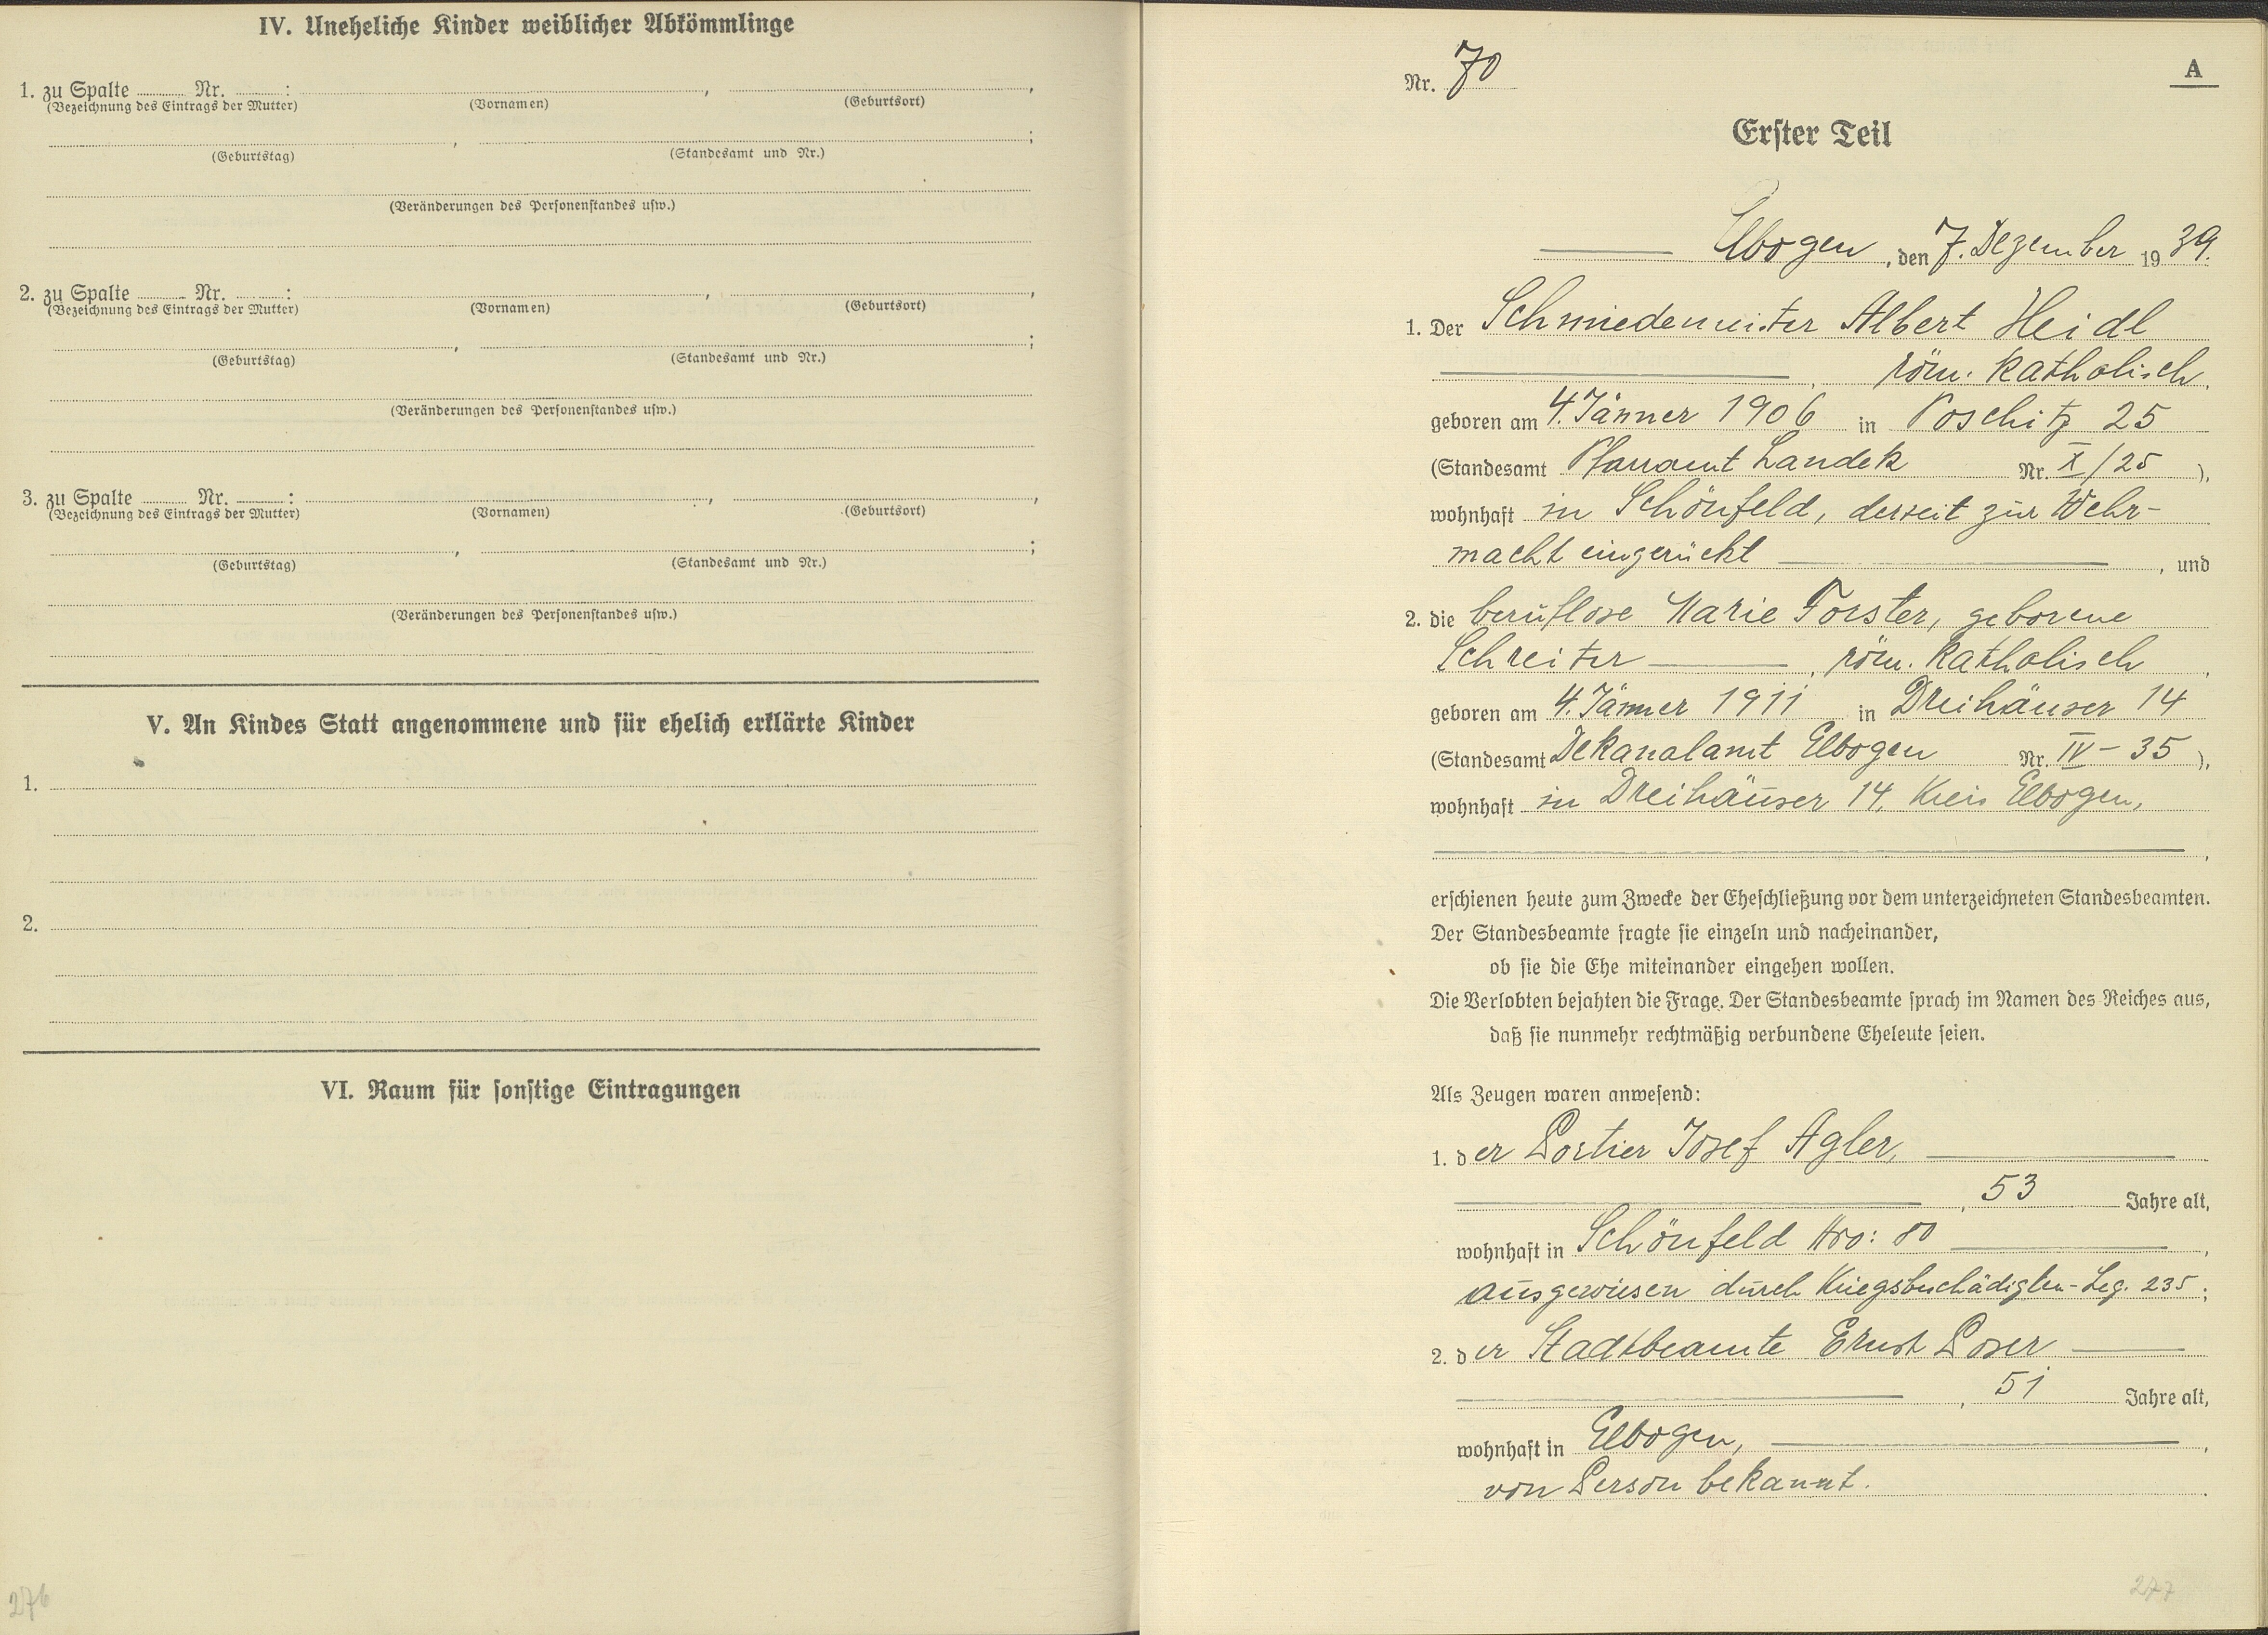 IV. Uneheliche Kinder weiblicher Abkömmlinge
1. zu Spalte ........ Nr. ........ : ........, ........,
(Bezeichnung des Eintrags der Mutter) (Vornamen) (Geburtsort)
........, ........;
(Geburtstag) (Standesamt und Nr.)
(Veränderungen des Personenstandes usw.)
2. zu Spalte ........ Nr. ........ : ........, ........,
(Bezeichnung des Eintrags der Mutter) (Vornamen) (Geburtsort)
........, ........;
(Geburtstag) (Standesamt und Nr.)
(Veränderungen des Personenstandes usw.)
3. zu Spalte ........ Nr. ........ : ........, ........,
(Bezeichnung des Eintrags der Mutter) (Vornamen) (Geburtsort)
........, ........;
(Geburtstag) (Standesamt und Nr.)
(Veränderungen des Personenstandes usw.)
V. An Kindes Statt angenommene und für ehelich erklärte Kinder
1.
2.
VI. Raum für sonstige Eintragungen
276
A
Nr. 70
Erster Teil
Elbogen, den 7. Dezember 19 39.
1. Der Schmiedemeister Albert Heidl
, röm. katholisch,
geboren am 4. Jänner 1906 in Poschitz 25
(Standesamt Pfarramt Landek Nr. X/25 ),
wohnhaft in Schönfeld, derzeit zur Wehr-
macht eingerückt, und
2. die beruflose Marie Forster, geborene
Schreiter, röm. katholisch,
geboren am 4. Jänner 1911 in Dreihäuser 14
(Standesamt Dekanalamt Elbogen Nr. IV - 35 ),
wohnhaft in Dreihäuser 14, Kreis Elbogen,
,
erschienen heute zum Zwecke der Eheschließung vor dem unterzeichneten Standesbeamten.
Der Standesbeamte fragte sie einzeln und nacheinander,
ob sie die Ehe miteinander eingehen wollen.
Die Verlobten bejahten die Frage. Der Standesbeamte sprach im Namen des Reiches aus,
daß sie nunmehr rechtmäßig verbundene Eheleute seien.
Als Zeugen waren anwesend:
1. der Portier Josef Agler,
, 53 Jahre alt,
wohnhaft in Schönfeld Nro: 80,
ausgewiesen durch Kriegsbeschädigten-Leg. 235;
2. der Stadtbeamte Ernst Poser
, 51 Jahre alt,
wohnhaft in Elbogen,
von Person bekannt.
277